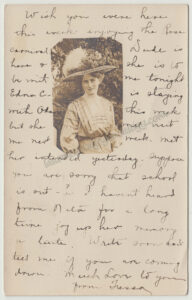 Wish you were here
this week enjoying the Rose
carnival Dude is
here & she is to
be with me tonight
Edna is staying
with this week
but she met next
me next week. met
her yesterday. suppose
you are sorry that school
is out. I havent heard
from for a long
time up her memory
a little. Write soon and
tell me if you are coming
down. Much love to you
from